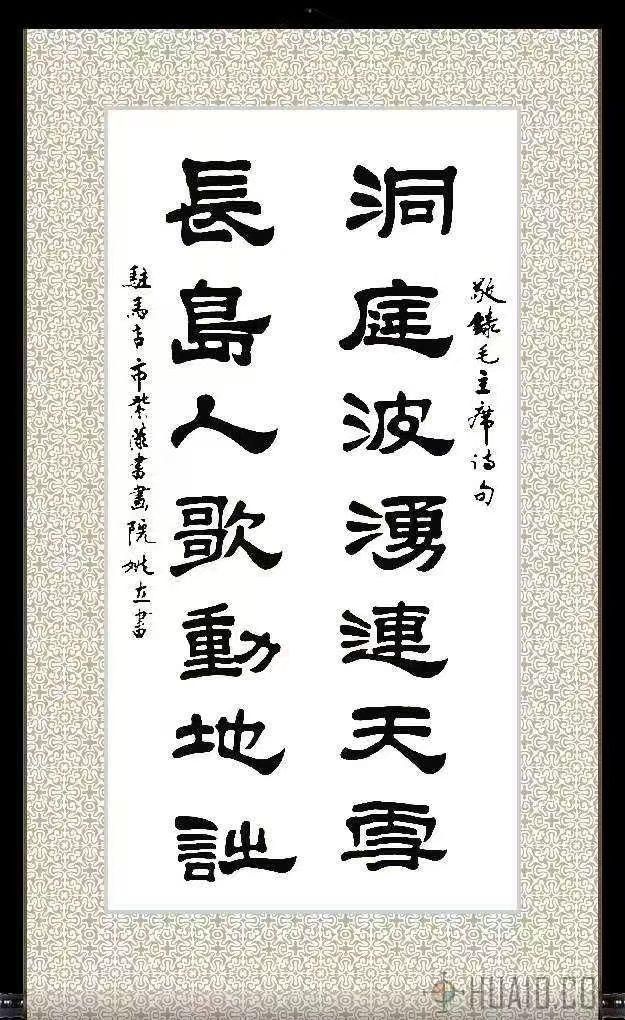 敬錄毛主席诗句
洞庭波湧連天雪
長島人歌動地詩
駐馬店市紫書畫院姚立書
HUAIO.CO